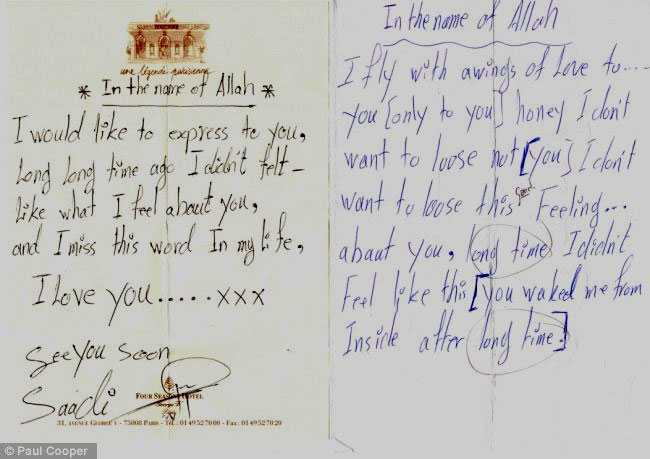 une légende parisienne
* In the name of Allah *
I would like to express to you,
Long long time ago I didn't felt -
Like what I feel about you,
and I miss this word In my life,
I Love you.....xxx
See you soon
Saadi
FOUR SEASONS HOTEL
George V
31, AVENUE GEORGE V - 75008 PARIS - TEL : 01 49 52 70 00 - FAX : 01 49 52 70 20
In the name of Allah
I fly with awings of Love to....
you [only to you] honey I don't
want to loose not [you] I don't
want to loose this good Feeling...
about you, long time I didin't
Feel like this [you waked me from
Inside after long time.]
© Paul Cooper